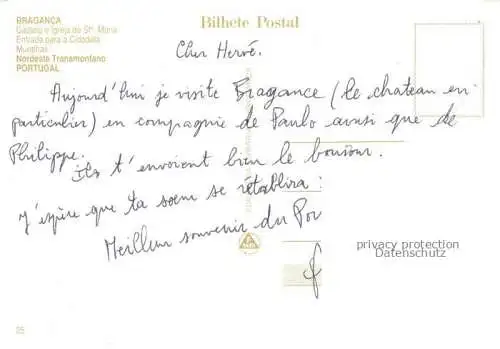 BRAGANÇA
Castelo e Igreja de Stª. Maria
Entrada para a Cidadela
Muralhas
Nordeste Transmontano
PORTUGAL
Bilhete Postal
Cher Hervé.
Aujourd'hui je visite Bragance (le chateau en
particulier) en compagnie de Paulo ainsi que de
Philippe.
Ils t'envoient bien le bonjour.
J'espère que ta soeur se rétablira :
Meilleur souvenir du Por
privacy protection
Datenschutz